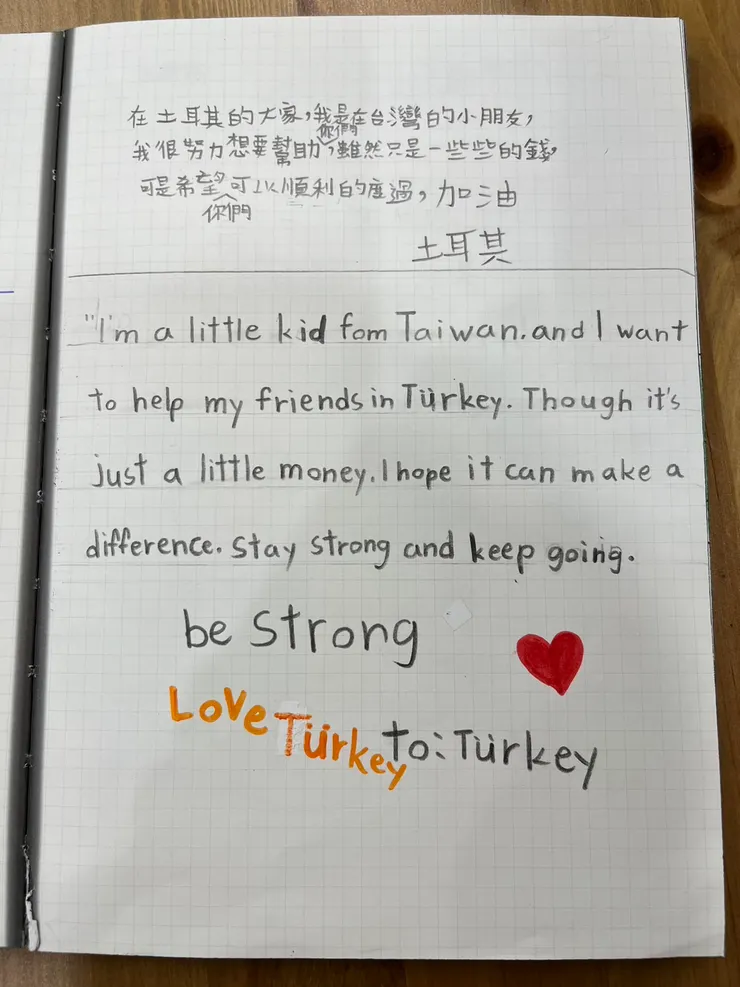 在土耳其的大家,我是在台灣的小朋友,
我很努力想要幫助你們,雖然只是一些些的錢,
可是希望你們可以順利的度過,加油
土耳其
"I'm a little kid fom Taiwan.and I want
to help my friends in Türkey. Though it's
just a little money.I hope it can make a
difference. Stay strong and keep going.
be strong
Love Türkey
to:Türkey